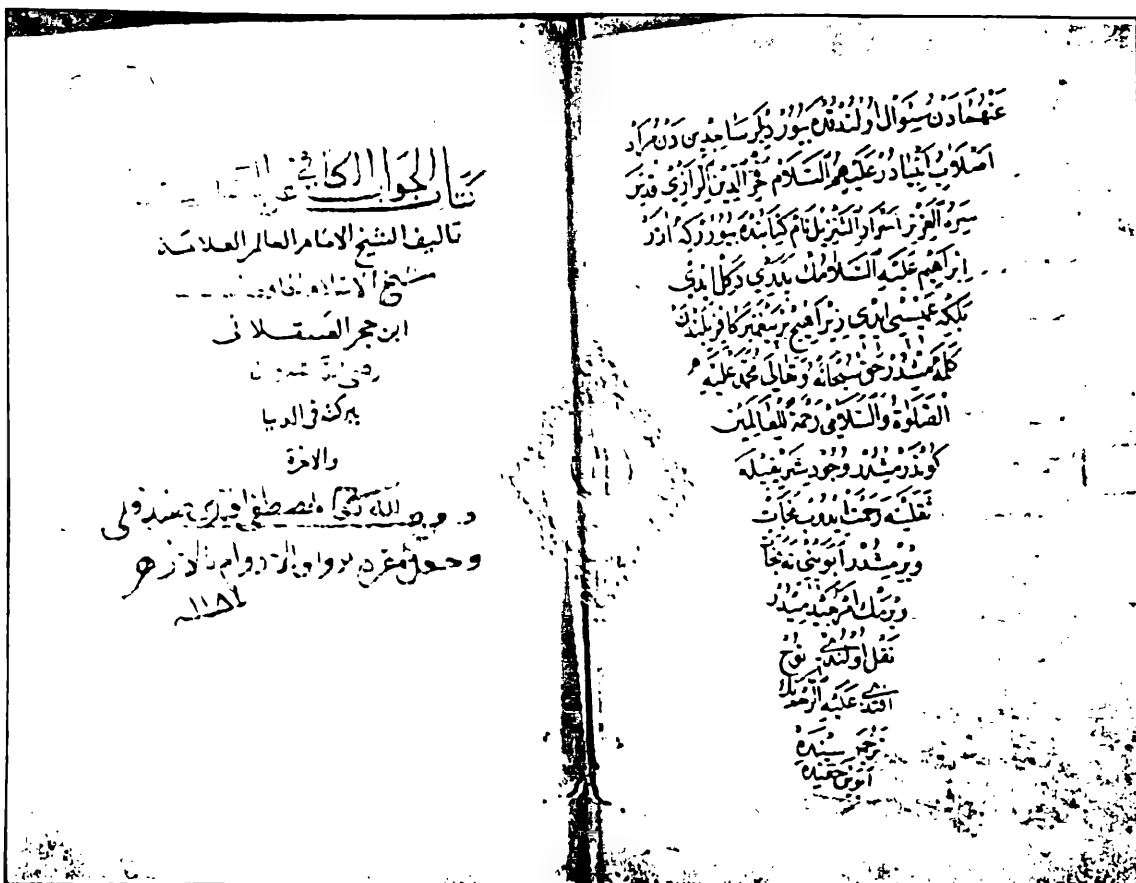 عَنْهُمَادَنْ سُئِوَالْ اُولُنْدُقْدَه بُيُورْدِيلَرْ سَاجِدِينْ دَنْ مُرَادْ
اَصْلَابِ اَنْبِيَادُرْ عَلَيْهِمُ السَّلَامْ فَخْرُ الدِّينِ الرَّازِيْ قُدِّسَ
سِرُّهُ الْعَزِيزْ اَسْرَارِ التَّنْزِيلْ نَامْ كِتَابِنْدَه بُيُورُرْ كِه اٰزَرْ
اِبْرَاهِيمْ عَلَيْهِ السَّلَامُكْ پَدَرِيْ دَكِلْ اِيدِيْ
بَلْكِه عَمِيسِيْ ايدِي زِيرَا هِيچْ بِرْ پَيْغَمْبَرْ كَافِرْ بَلِنْدَنْ
كَلْمَهْ مِشْدُرْ حَقْ سُبْحَانَهُ وَتَعَالَى مُحَمَّدْ عَلَيْهِ
الصَّلٰوةُ وَالسَّلَامِيْ رَحْمَةً لِلْعَالَمِينْ
كُونْدَرْمِشْدُرْ وُجُودِ شَرِيفِيلَه
ثَقَلَيْنَه رَحْمَتْ ايدُوبْ نَجَاتْ
وِيرْمِشْدُرْ اَبَوَيْنِي نَه نَجَاتْ
وِيرْمَكْ اَمْرِ بَعِيدْ مِيدُرْ
نَقْلْ اُولُنْدِيْ نُوحْ
افندى عَلَيْهِ الرَّحْمَه نِكْ
تَرْجَمَه سِينْدَه
اَبَوَيْنْ حَقِّنْدَه
كتاب الجواب الكافي عن
تاليف الشيخ الامام العالم العلامة
شيخ الاسلام
ابن حجر العسقلاني
رضي الله
ببركته في الدنيا
والاخرة
مصطفى افندي
وجعل مقره برواق الاروام بالازهر
١١٨١